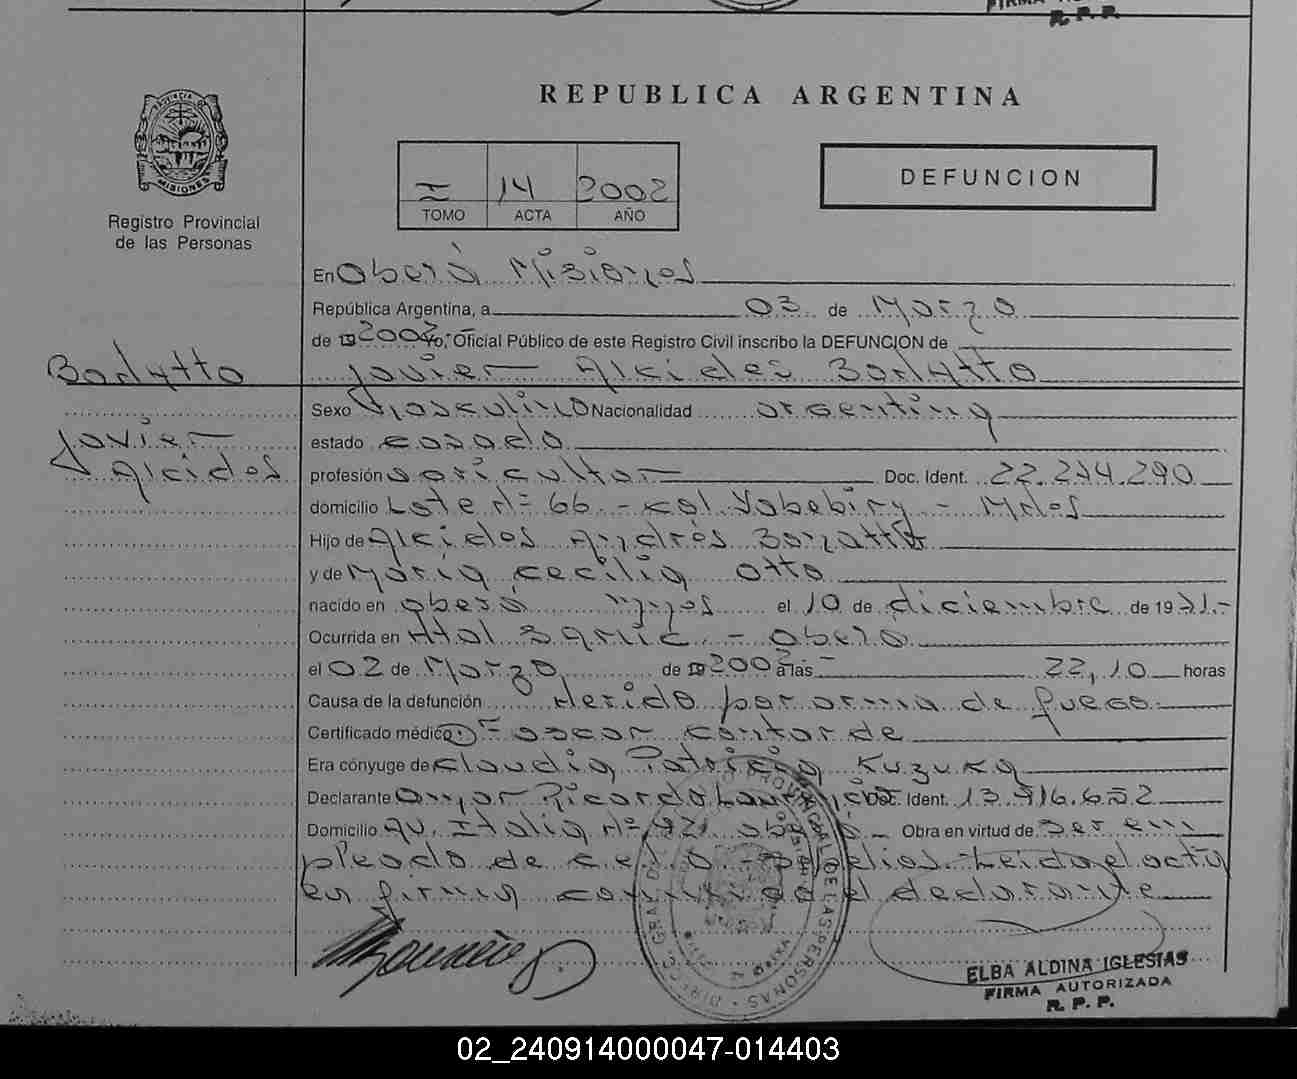 REPUBLICA ARGENTINA
PROVINCIA DE
MISIONES
Registro Provincial
de las Personas
I 14 2002
TOMO ACTA AÑO
DEFUNCION
En Oberá Misiones
República Argentina, a 03 de Marzo
de 19 2002 Yo, Oficial Público de este Registro Civil inscribo la DEFUNCION de
Javier Alcides
Javier
Alcides
Sexo Masculino Nacionalidad argentina
estado casado
profesión agricultor Doc. Ident. 22.294.290
domicilio Lote Nº 66 - col. Yabebiry - Mnes
Hijo de Alcides Andrés
y de María Cecilia Otto
nacido en Oberá Mnes el 10 de diciembre de 1971.-
Ocurrida en Htal Samic - Oberá
el 02 de Marzo de 19 2002 a las 22,10 horas
Causa de la defunción Herido por arma de fuego.
Certificado médico Oscar
Era cónyuge de Claudia Patricia Kuzuka
Declarante Omar Ricardo Doc. Ident. 13.916.652
Domicilio Av. Italia Nº Oberá - Obra en virtud de ser em
pleado de - Leida el acta
en firma conmigo el declarante
ELBA ALDINA IGLESIAS
FIRMA AUTORIZADA
R. P. P.
02_240914000047-014403